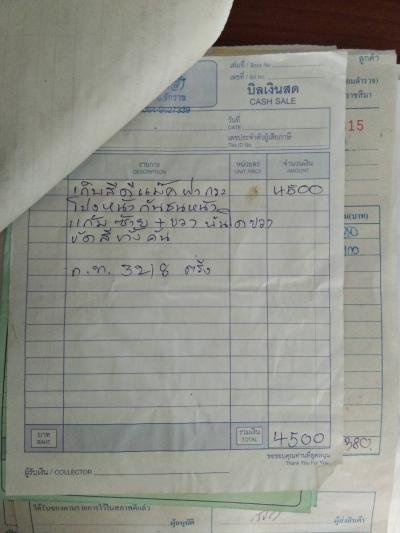 เล่มที่ / Book No.
เลขที่ / Bill No.
บิลเงินสด
CASH SALE
วันที่
DATE
เลขประจำตัวผู้เสียภาษี
Tax ID No.
รายการ
DESCRIPTION
หน่วยละ
UNIT PRICE
จำนวนเงิน
AMOUNT
เก็บสีดีแม็ค ฝากระ 4500
โปงหน้า กันชนหน้า
แก้ม ซ้าย + ขวา บันไดขวา
ขัดสีทั้งคัน
ก.ท. 3218 ตรัง
บาท
BAHT
รวมเงิน
TOTAL
4500
ขอขอบคุณท่านที่อุดหนุน
Thank You For You
ผู้รับเงิน / COLLECTOR
ลูกค้า
15
ได้รับของตามรายการไว้ในสภาพดีแล้ว
ผู้อนุมัติ
ผู้ส่งสินค้า